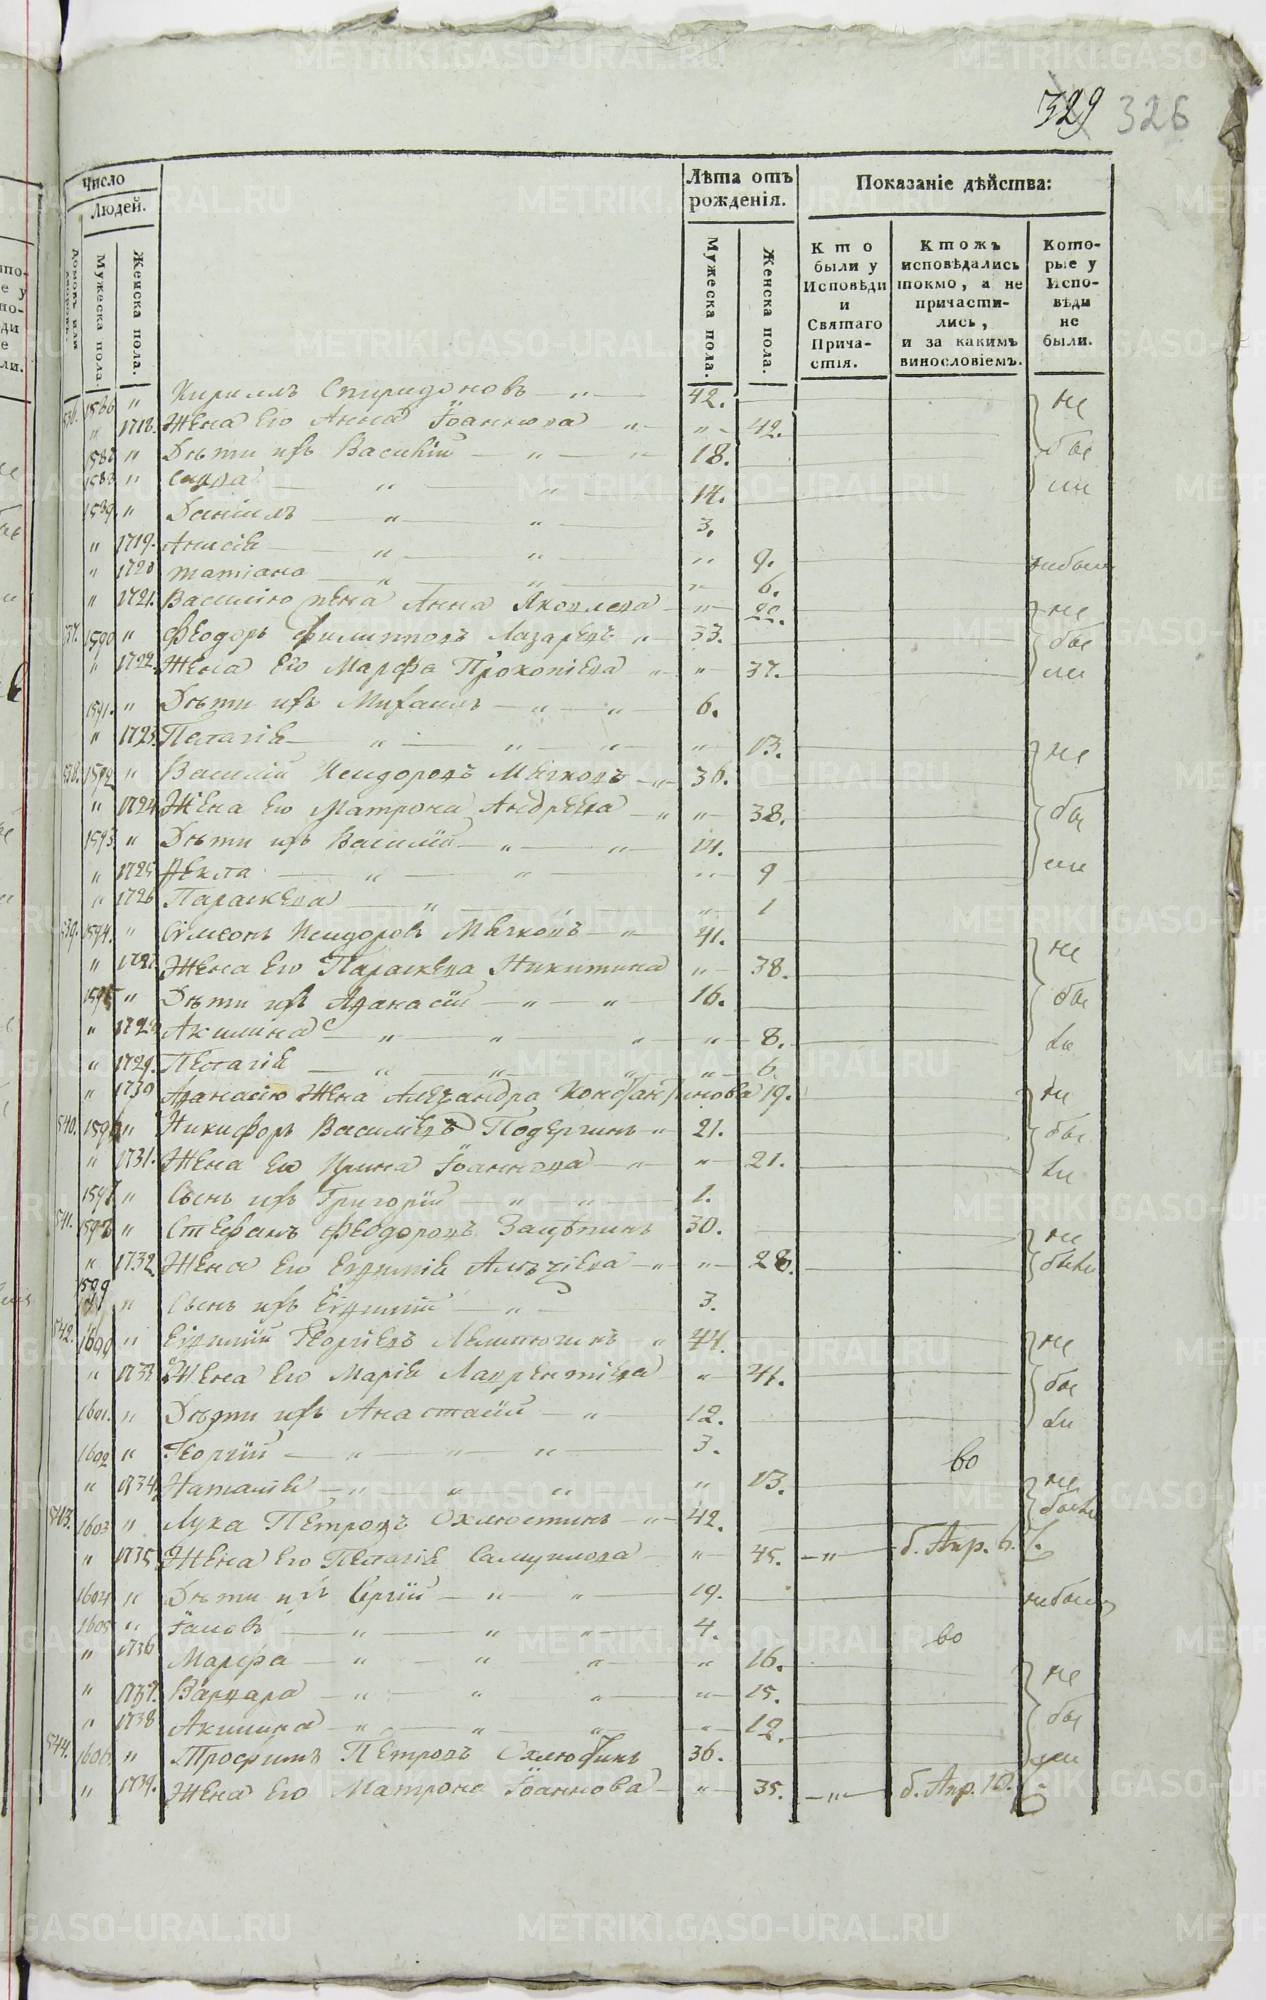 329 326
Число
Людей.
Домовъ или дворовъ.
Мужеска пола.
Женска пола.
Лѣта отъ рожденія.
Мужеска пола.
Женска пола.
Показаніе дѣйства:
Кто были у Исповѣди и Святаго Причастія.
Ктожъ исповѣдались токмо, а не причастились, и за какимъ винословіемъ.
Которые у Исповѣди не были.
536. 1586 " Кириллъ Спиридоновъ — " — 42. не
" 1718. Жена Его Анна Іоаннова " " 42.
1587 " Дѣти ихъ Василій — " — " 18. бы
1588 " Савва — " — " — 14. ли
1589. " Даніилъ — " — " — 3.
" 1719. Анисія — " — " — " 9.
" 1720 Татіана — " — " — " 6. небыли
" 1721. Василію жена Анна Яковлева — " — 20. не
537. 1590 " Ѳеодоръ Филипповъ Лазаревъ " 33. бы
" 1722. Жена Его Марфа Прокопіева " " 37. ли
1591. " Дѣти ихъ Михаилъ — " — " 6.
" 1723. Пелагія — " — " — " " 13. не
538. 1592 " Василій Исидоровъ Мягковъ — " 36.
" 1724 Жена Его Матрона Андреева " " 38. бы
1593 " Дѣти ихъ Василій — " — " 14.
" 1725 Ѳекла — " — " — " 9 ли
" 1726 Параскева — " — " 1
539. 1594. " Сѵмеонъ Исидоровъ Мягковъ — " 41. не
" 1727 Жена Его Параскева Никитина " 38.
1595 " Дѣти ихъ Аѳанасій — " — " 16. бы
" 1728 Акилина — " — " " " 8. ли
" 1729. Пелагія — " — " " " 6.
" 1730 Аѳанасію Жена Александра Константинова 19. не
540. 1596 " Никифоръ Васильевъ Подергинъ " 21. бы
" 1731. Жена Его Ирина Іоаннова — " " 21. ли
1597 " Сынъ ихъ Григорій " " 1.
541. 1598 " Стефанъ Ѳеодоровъ Зацѣпинъ 30. не
" 1732. Жена Его Евѳимія Алексіева — " " 28. были
1599 " Сынъ ихъ Евѳимій — " — 3.
542. 1600 " Евѳимій Георгіевъ " 44. не
" 1733. Жена Его Марія Лаврентіева " 41. бы
1601. " Дѣти ихъ Анастасій — " — 12. ли
1602 " Георгій — " — " — " 3. во
" 1734. Наталія — " " " " 13. не
543. 1603 " Лука Петровъ Охлюстинъ — " 42. были
" 1735 Жена Его Пелагія Самуилова " 45. — " — б. Апр. 6.
1604 " Дѣти ихъ Сергій — " — " 19. небыли
1605 " Іаковъ — " — " — " 4. во
" 1736 Марфа — " — " — " " 16. не
" 1737. Варвара — " — " — " " 15.
" 1738 Акилина — " — " — " " 12. бы
544. 1606 " Трофимъ Петровъ Охлюстинъ 36. ли
" 1739. Жена Его Матрона Іоаннова — " 35. — " — б. Апр. 10.